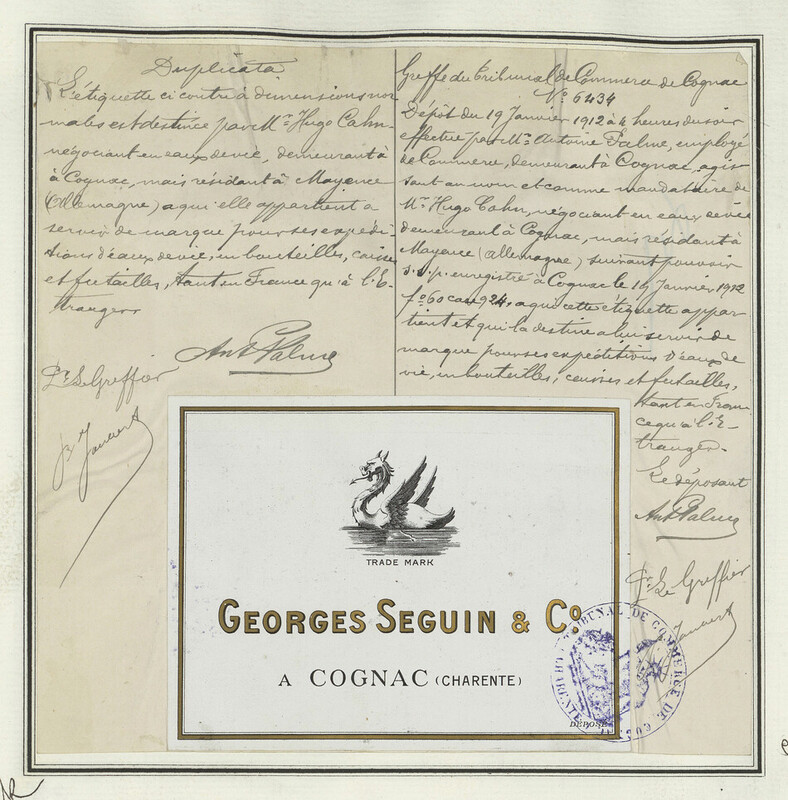 Duplicata
L'étiquette ci contre à dimensions nor
males est destinée par Mr Hugo Cahn
négociant en eaux de vie, demeurant à
à Cognac, mais résidant à Mayence
(Allemagne) a qui elle appartient à
servir de marque pour ses expédi-
tions d'eaux de vie, en bouteilles, caisses
et futailles, tant en France qu'à l'E-
tranger.
Ant Palme
Le Greffier
Greffe du Tribunal de Commerce de Cognac
No 6434
Dépôt du 19 Janvier 1912 à 4 heures du soir
effectué par Mr Antoine Palme, employé
de Commerce, demeurant à Cognac, agis
sant au nom et comme mandataire de
Mr Hugo Cahn, négociant en eaux de vie
demeurant à Cognac, mais résidant à
Mayence (Allemagne) suivant pouvoir
s.s.p. enregistré à Cognac le 19 Janvier 1912
fo 60 case 924, a qui cette étiquette appar
tient et qui la destine à lui servir de
marque pour ses expéditions d'eaux de
vie, en bouteilles, caisses et futailles,
tant en Fran
ce qu'à l'E-
tranger.
Le déposant
Ant Palme
Le Greffier
TRADE MARK
GEORGES SEGUIN & Co
A COGNAC (CHARENTE)
DÉPOSÉ
TRIBUNAL DE COMMERCE DE COGNAC
CHARENTE